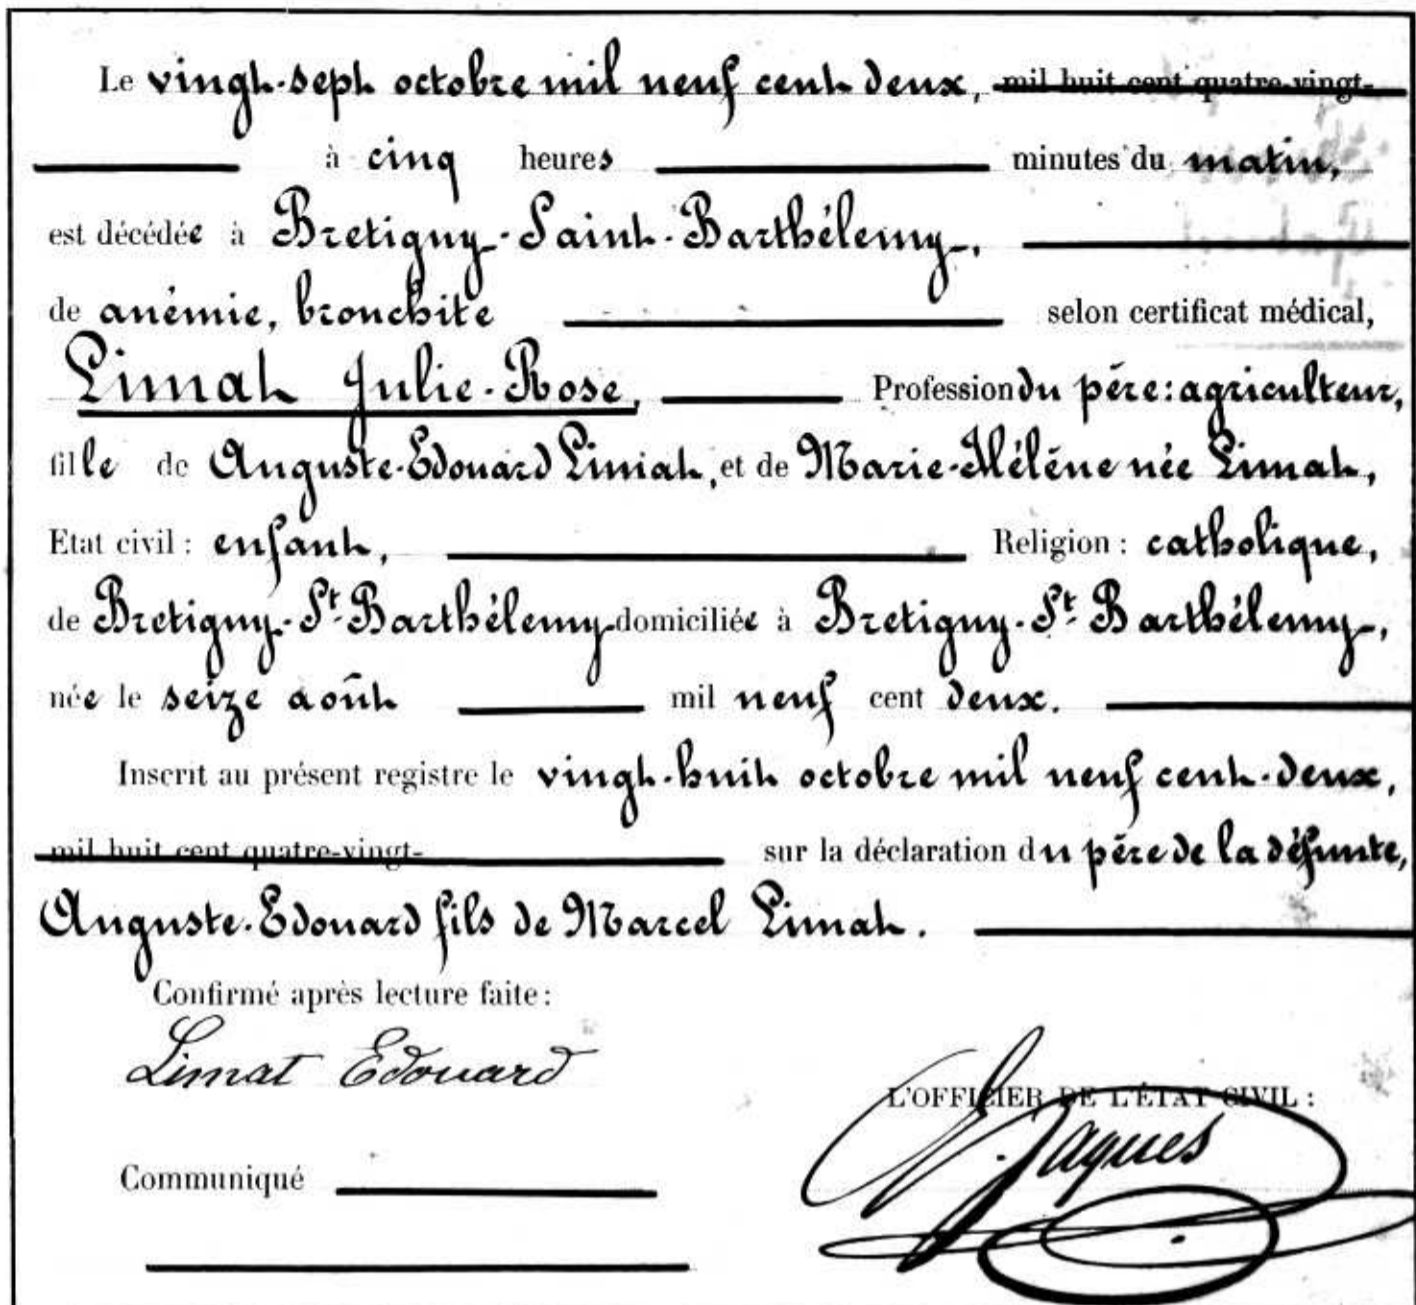 Le vingt-sept octobre mil neuf cent deux, mil huit cent quatre-vingt-
à cinq heures minutes du matin,
est décédée à Bretigny-Saint-Barthélemy,
de anémie, bronchite selon certificat médical,
Limat Julie-Rose, Profession du père: agriculteur,
fille de Auguste-Edouard Limat, et de Marie-Hélène née Limat,
Etat civil: enfant, Religion: catholique,
de Bretigny-St-Barthélemy domiciliée à Bretigny-St-Barthélemy,
née le seize août mil neuf cent deux.
Inscrit au présent registre le vingt-huit octobre mil neuf cent-deux,
mil huit cent quatre-vingt- sur la déclaration du père de la défunte,
Auguste-Edouard fils de Marcel Limat.
Confirmé après lecture faite:
Limat Edouard
L'OFFICIER DE L'ÉTAT CIVIL:
Jaques
Communiqué